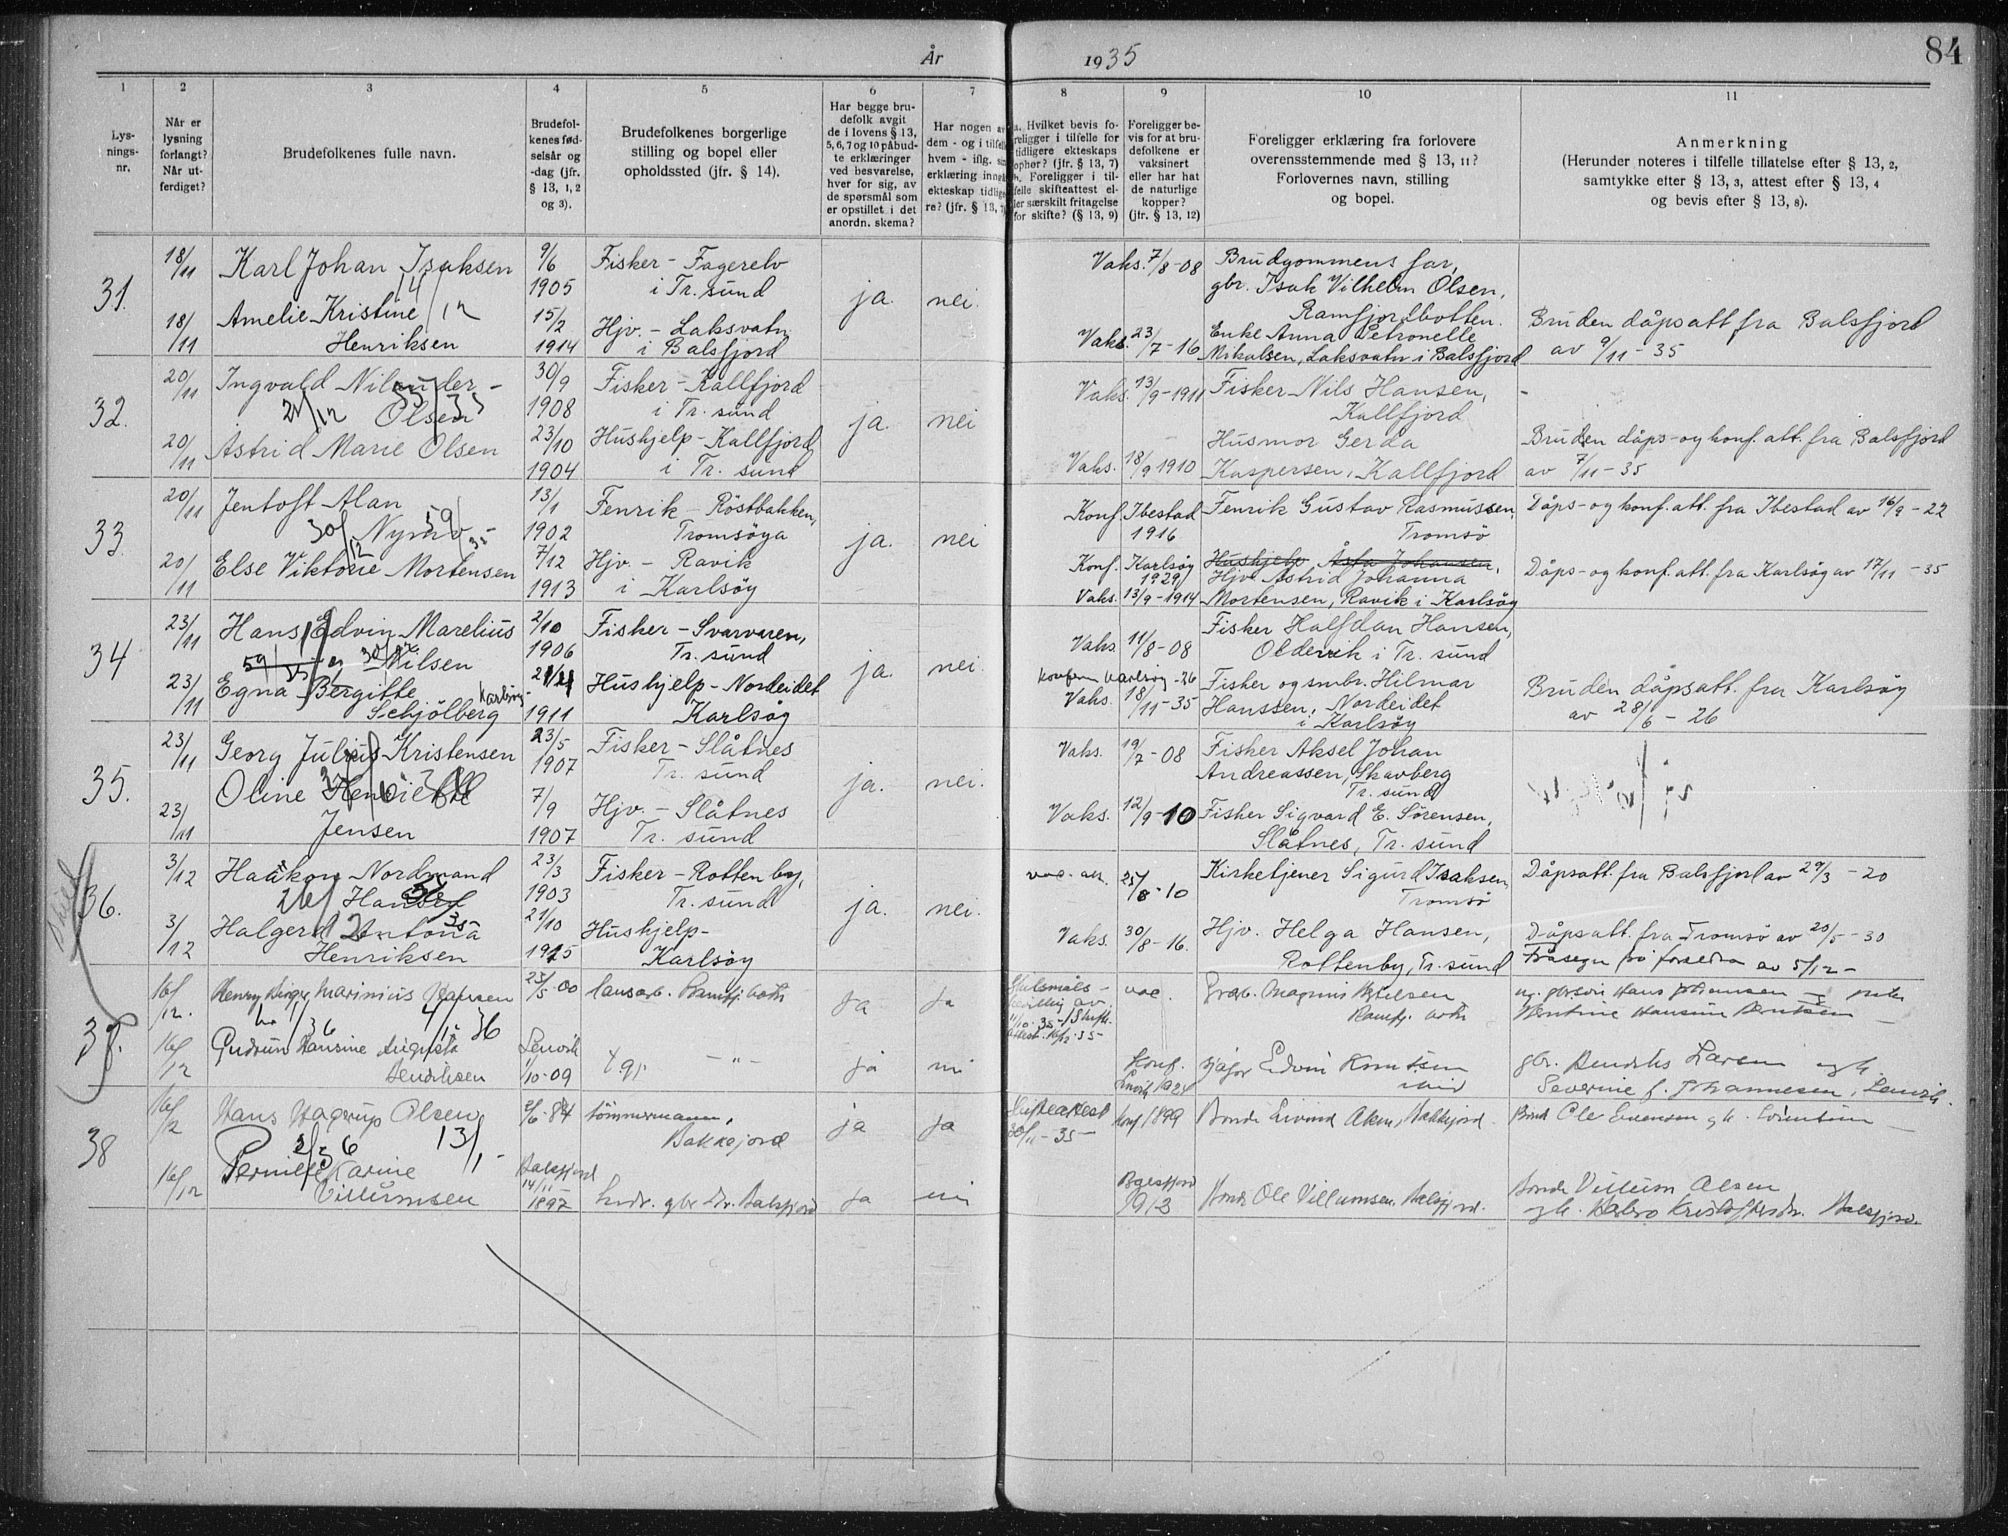 År 1935
84
1 2 3 4 5 6 7 8 9 10 11
Lysnings-nr.
Når er lysning forlangt? Når utferdiget?
Brudefolkenes fulle navn.
Brudefolkenes fødselsår og -dag (jfr. § 13, 1, 2 og 3).
Brudefolkenes borgerlige stilling og bopel eller opholdssted (jfr. § 14).
Har begge brudefolk avgit de i lovens § 13, 5, 6, 7 og 10 påbudte erklæringer ved besvarelse, hver for sig, av de spørsmål som er opstillet i det anordn. skema?
Har nogen av dem - og i tilfelle hvem - iflg. erklæring inngått ekteskap tidligere? (jfr. § 13, 7)
a. Hvilket bevis foreligger i tilfelle for tidligere ekteskaps ophør? (jfr. § 13, 7) b. Foreligger i tilfelle skifteattest eller særskilt fritagelse for skifte? (§ 13, 9)
Foreligger bevis for at brudefolkene er vaksinert eller har hat de naturlige kopper? (jfr. § 13, 12)
Foreligger erklæring fra forlovere overensstemmende med § 13, 11? Forlovernes navn, stilling og bopel.
Anmerkning (Herunder noteres i tilfelle tillatelse efter § 13, 2, samtykke efter § 13, 3, attest efter § 13, 4 og bevis efter § 13, 8).
31. 18/11 Karl Johan Isaksen 9/6 1905 Fisker - Fagerelv i Tr. sund ja. nei. Vaks. 7/8-08 Brudgommens far, gbr. Isak Vilhelm Olsen, Ramfjordbotten.
14/12
18/11 Amelie Kristine Henriksen 15/2 1914 Hjv. - Laksvatn i Balsfjord Vaks. 23/7-16 Enke Anna Petronelle Mikalsen, Laksvatn i Balsfjord Bruden dåpsatt fra Balsfjord av 9/11-35
32. 20/11 Ingvald Nilander - Olsen 30/9 1908 Fisker - Kallfjord i Tr. sund ja. nei Vaks. 13/9-1911 Fisker Nils Hansen, Kallfjord -
20/11 Astrid Marie Olsen 23/10 1904 Hushjelp - Kallfjord i Tr. sund Vaks. 18/9 1910 Husmor Gerda Kaspersen, Kallfjord Bruden dåps- og konf. att. fra Balsfjord av 7/11-35
33. 20/11 Jentoft Alan 13/1 1902 Fenrik - Röstbakken, Tromsöya ja. nei Konf. Ibestad 1916 Fenrik Gustav Rasmussen, Tromsö Dåps- og konf. att. fra Ibestad av 16/9-22
20/11 Else Viktorie Mortensen 7/12 1913 Hjv. - Ravik i Karlsöy Konf. Karlsöy 1929 Vaks. 13/9-1914 Hushjelp Åsta Johansen, Hjv. Astrid Johanna Mortensen, Ravik i Karlsöy Dåps- og konf. att. fra Karlsöy av 17/11-35
34 23/11 Hans Edvin Marelius Nilsen 2/10 1906 Fisker - Svarvaren, Tr. sund ja. nei. Vaks 11/8-08 Fisker Halfdan Hansen, Oldervik i Tr. sund
23/11 Egna Bergitte Schjölberg Karlsöy 1911 Hushjelp - Nordeidet Karlsöy Karlsöy -26 Vaks. 18/11-35 Fisker og smbr. Hilmar Hanssen, Nordeidet i Karlsöy Bruden dåpsatt. fra Karlsöy av 28/6-26
35. 23/11 Georg Julius Kristensen 23/5 1907 Fisker - Slåtnes Tr. sund ja. nei. Vaks. 19/7-08 Fisker Aksel Johan Andreassen, Skavberg Tr. sund
23/11 Oline Henriette Jensen 7/9 1907 Hjv. - Slåtnes Tr. sund Vaks. 12/9-10 Fisker Sigvard E. Sörensen, Slåtnes, Tr. sund
36. 3/12 Haakon Nordmand Hansen 23/3 1903 Fisker - Rottenby, Tr. sund ja. nei. 25/8-10 Kirketjener Sigurd Isaksen Tromsö Dåpsatt. fra Balsfjord av 29/3-20
3/12 Halgerd Antona Henriksen 21/10 1915 Hushjelp - Karlsöy Vaks. 30/8-16. Hjv. Helga Hansen, Rottenby, Tr. sund Dåpsatt. fra Tromsö av 20/5-30
37. 16/12. Henry Birger Marinius 23/5-00 ja ja vac.
16/12 Gudrun Hansine Augusta Lenvik 1/10-09 - " - ja Konf. Edvin Severine f. Johannesen, Lenvik.
38 16/12 Hans Hagerup Olsen tömmermann, Bakkejord ja ja Konf 1899 Bonde Eivind
13/1
16/12 Pernille Karine Villumsen Balsfjord 14/11 1897 ja 1913 Bonde Ole Villumsen, Balsfjord. Bonde Villum Olsen Balsfjord.